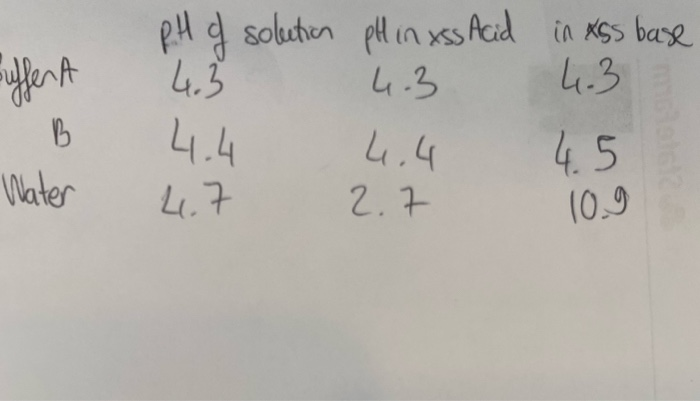 pH of solution pH in xss Acid in xss base
uffer A 4.3 4.3 4.3
B 4.4 4.4 4.5
Water 4.7 2.7 10.9